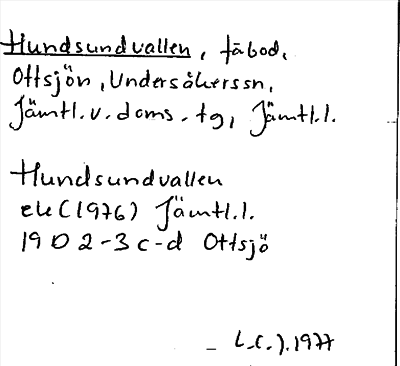 Hundsundvallen, fäbod,
Ottsjön, Undersåkerssn,
Jämtl.v.doms.tg, Jämtl.l.
Hundsundvallen
ek (1976) Jämtl.l.
19 D 2-3 c-d Ottsjö
1977